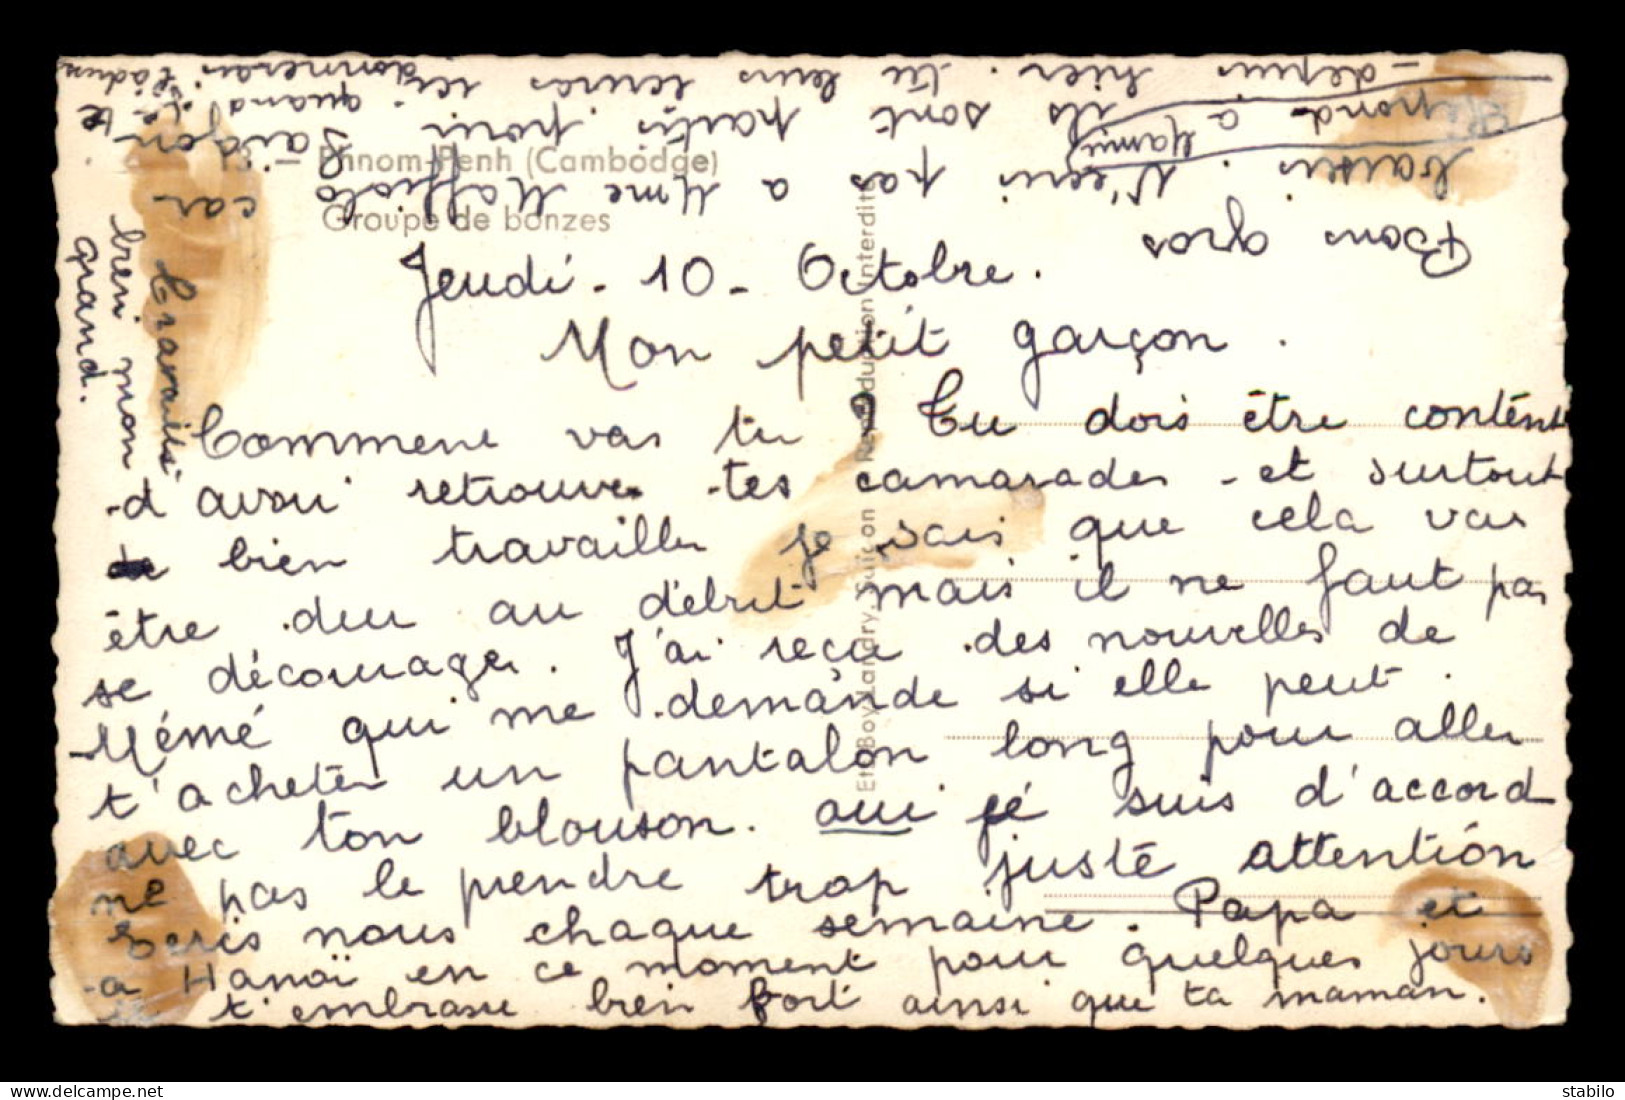 Phnom-Penh (Cambodge)
Groupe de bonzes
Jeudi - 10 - Octobre.
Mon petit garçon.
Comment vas tu ? Tu dois être content
d'avoir retrouve tes camarades et surtout
de bien travailler je sais que cela vas
être dur au début mais il ne faut pas
se décourager. J'ai reçu des nouvelles de
Mémé qui me demande si elle peut
t'acheter un pantalon long pour aller
avec ton blouson. oui je suis d'accord
ne pas le prendre trop juste attention
Ecris nous chaque semaine. Papa et
a Hanoï en ce moment pour quelques jours
t'embrasse bien fort ainsi que ta maman.
Travaille
bien mon
grand.
Bons gros
baisers. N'ecris pas a Mme Maffiolo car
Repond a Mamie
ils sont partis pour Saigon
depuis hier. tu leurs ecriras quand
je te donnerais
Et. Boy-Landry, Saigon Reproduction Interdite